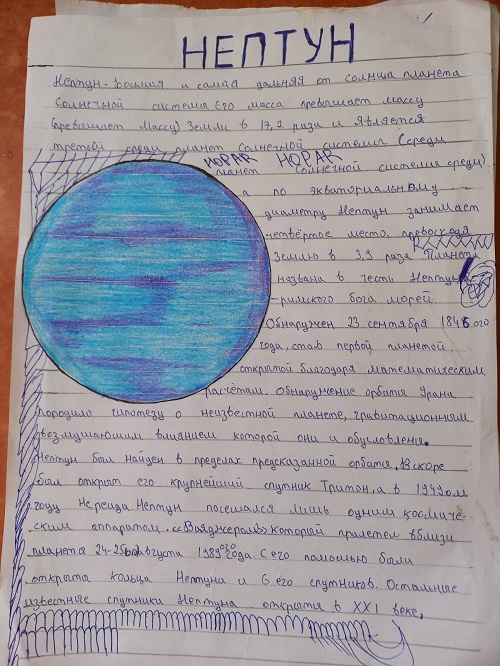 НЕПТУН
Нептун - восьмая и самая дальняя от солнца планета
Солнечной системы. Его масса превышает массу
(превышает массу) Земли в 17,2 раза и является
третьей среди планет Солнечной системы (среди
НОРАR НОРАR
планет Солнечной системы среди)
а по экваториальному
диаметру Нептун занимает
четвёртое место, превосходя
Землю в 3,9 раза Планета
названа в честь Нептуна
-римского бога морей
Обнаружен 23 сентября 1846ого
года, став первой планетой
открытой благодаря математическим
расчётам. Обнаружение орбита Урана
породило гипотезу о неизвестной планете, гравитационным
возмушаюшим влиянием которой они и обусловлена.
Нептун был найден в пределах предсказанной орбита, Вскоре
был открыт его крупнейший спутник Тритон, а в 1949ом
году Нереида Нептун посешался лишь одним космиче-
ским аппаратом, «Вояджером» который пролетел вблизи
планета 24-25 августа 1989ого года. С его помощью были
открыта кольца Нептуна и 6 его спутников. Остальные
известные спутники Нептуна открыта в XXI веке,